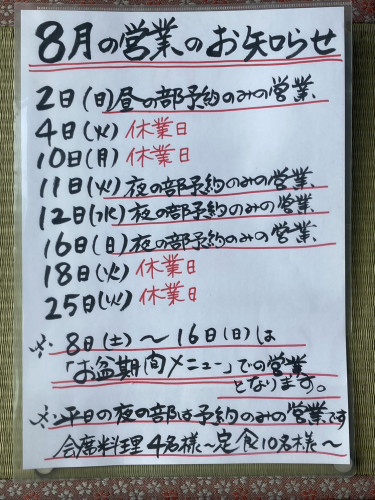 8月の営業のお知らせ
2日(日)昼の部予約のみの営業、
4日(火)休業日
10日(月)休業日
11日(火)夜の部予約のみの営業、
12日(水)夜の部予約のみの営業、
16日(日)夜の部予約のみの営業、
18日(火)休業日
25日(火)休業日
※ 8日(土)〜16日(日)は
「お盆期間メニュー」での営業
となります。
※平日の夜の部は予約のみの営業です
会席料理4名様〜定食10名様〜